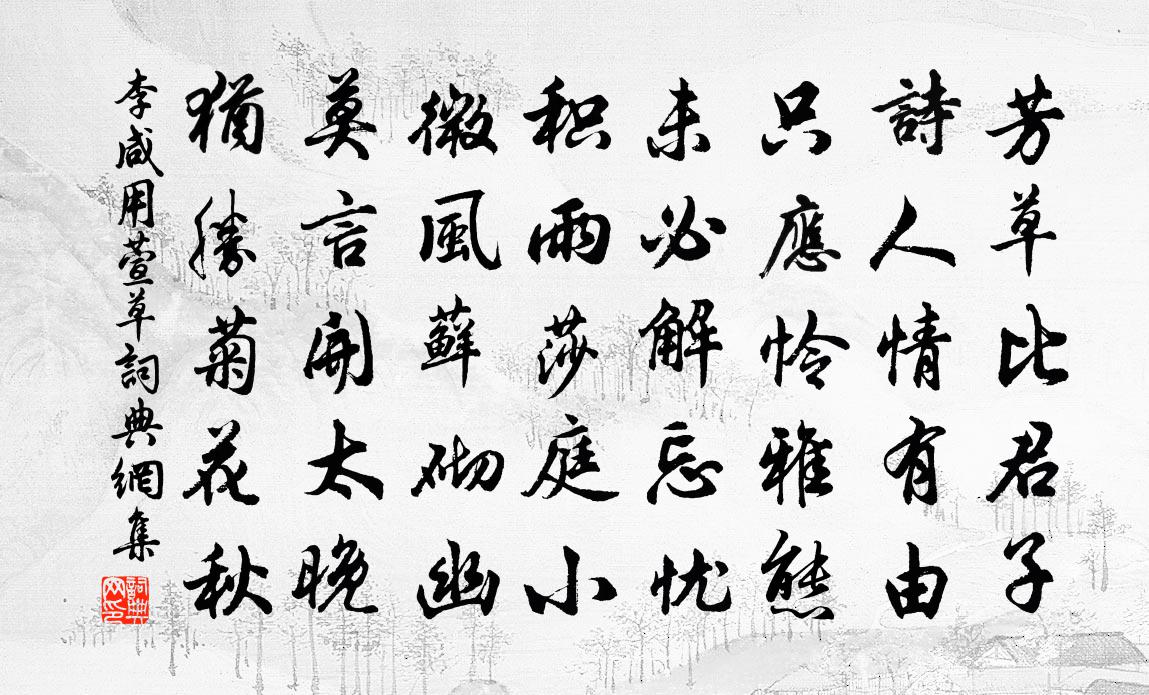 芳草比君子
詩人情有由
只應怜雅態
未必解忘忧
积雨莎庭小
微風蘚砌幽
莫言開太晚
猶勝菊花秋
李咸用萱草詞典網集